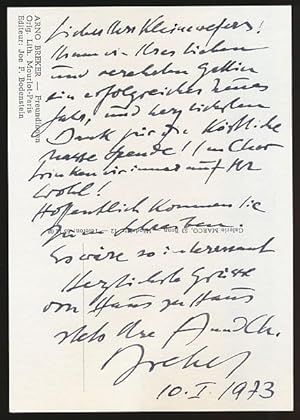 Lieber Herr Kleinewefers!
Ihnen, Ihrer lieben
und verehrten Gattin
ein erfolgreiches Neues
Jahr, und herzlichsten
Dank für die Köstliche
nasse Spende! Im Chor
trinken wir immer auf Ihr
Wohl!
Hoffentlich kommen Sie
Es wäre so interessant
Herzlichste Grüsse
von Haus zu Haus
stets Ihre A und Ch.
Breker
10.I.1973
ARNO BREKER — Freundinnen
Orig. Lith. Mourlot-Paris
Editeur: Joe F. Bodenstein
Galerie MARCO, 53 Bonn, 12 — Telefon